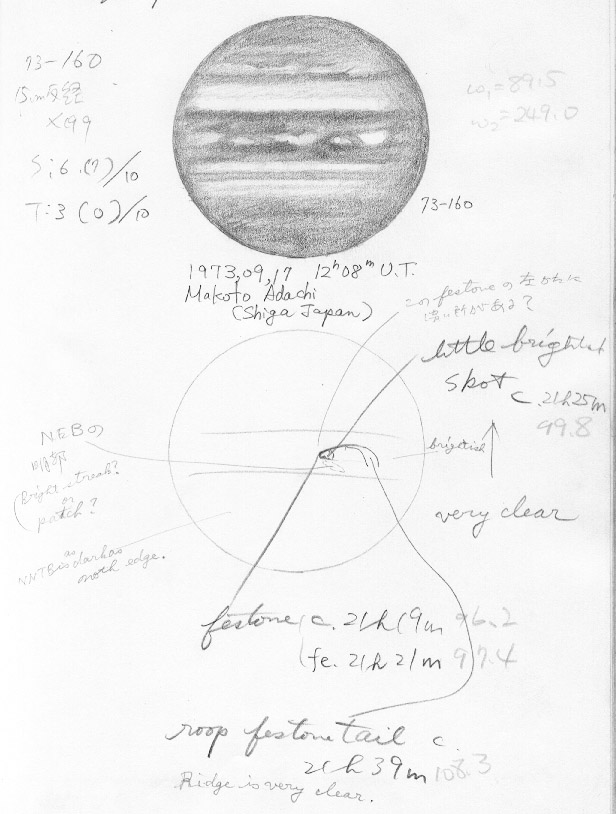 73-160
15cm反経
×199
S:6.(7)/10
T:3(0)/10
ω₁=89.5
ω₂=249.0
73-160
1973,09,17 12ʰ08ᵐ U.T.
Makoto Adachi
(Shiga Japan)
このfestoneの左がわに
濃い所がある?
little bright
spot
c. 21h25m
99.8
NEBの
明部
(Bright streak?
or
patch?
brightish
very clear
NNTB is as dark as
north edge.
festone c. 21h19m 96.2
fe. 21h21m 97.4
roop festone tail c.
21h39m 108.3
Ridge is very clear.